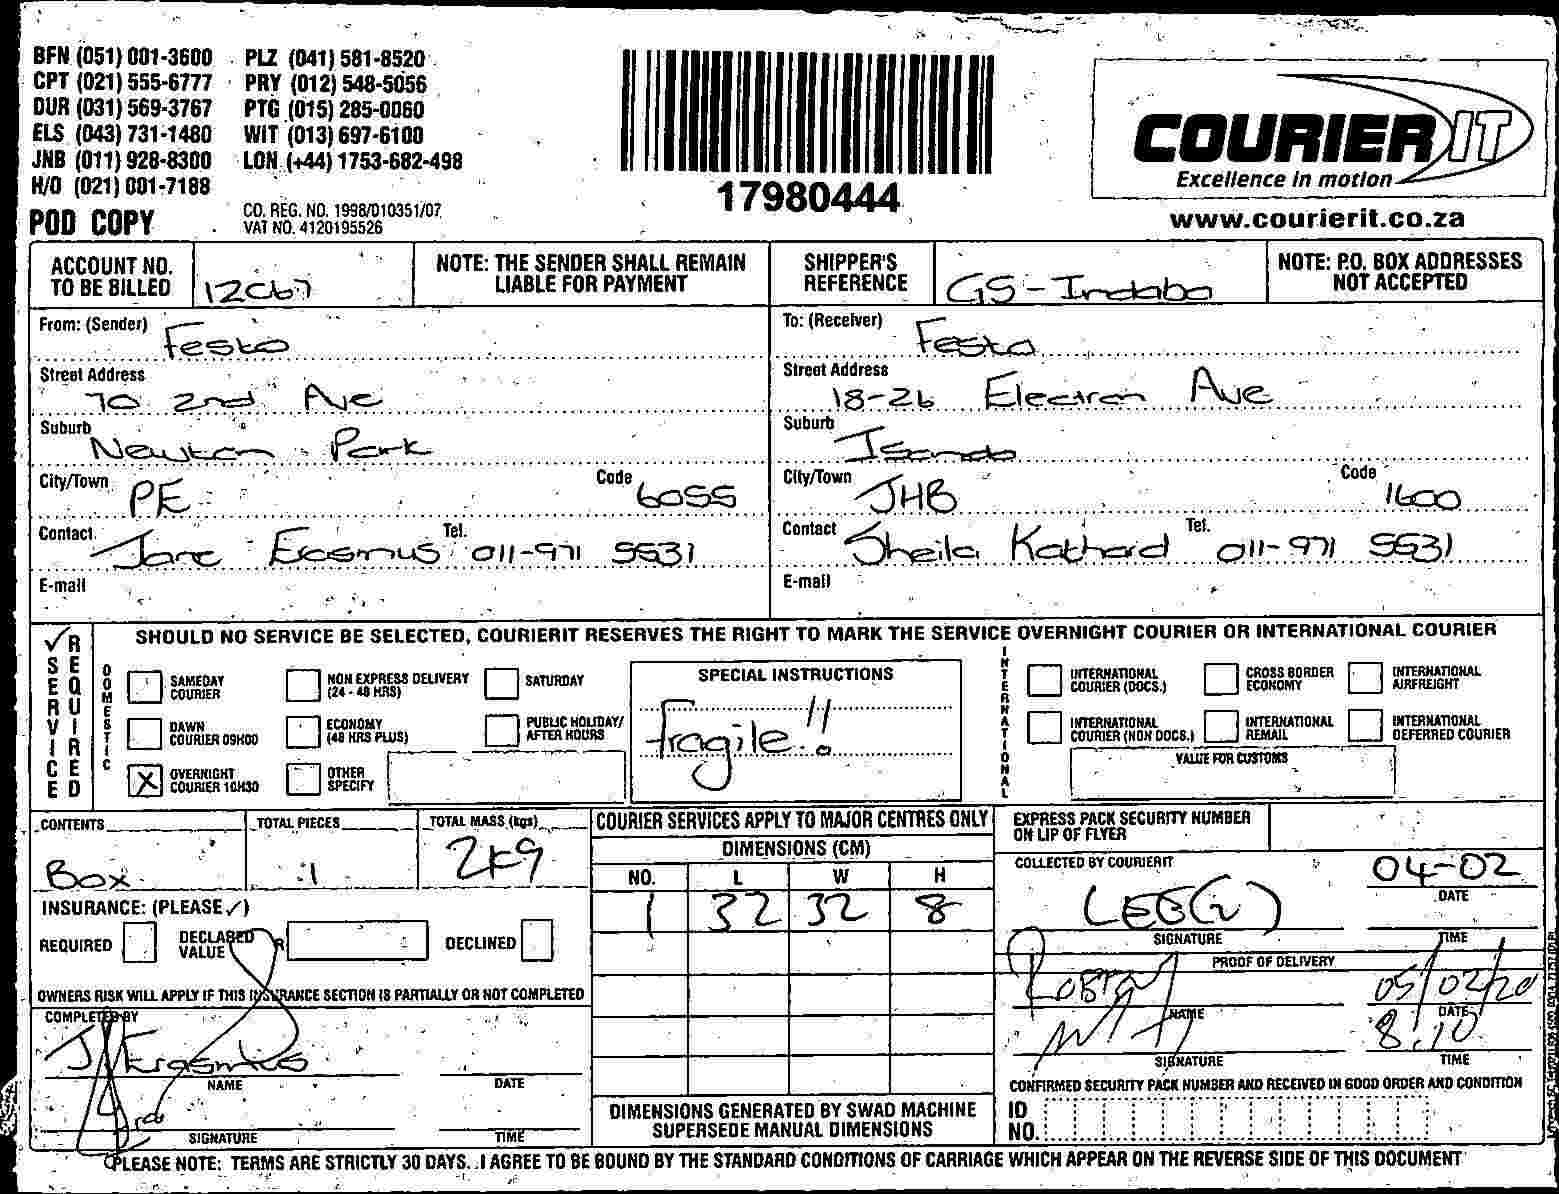 BFN (051) 001-3600 PLZ (041) 581-8520
CPT (021) 555-6777 PRY (012) 548-5056
DUR (031) 569-3767 PTG (015) 285-0060
ELS (043) 731-1480 WIT (013) 697-6100
JNB (011) 928-8300 LON (+44) 1753-682-498
H/O (021) 001-7188
POD COPY
CO. REG. NO. 1998/010351/07
VAT NO. 4120195526
17980444
COURIER IT
Excellence in motion
www.courierit.co.za
ACCOUNT NO. TO BE BILLED 12C67
NOTE: THE SENDER SHALL REMAIN LIABLE FOR PAYMENT
SHIPPER'S REFERENCE GS-Indaba
NOTE: P.O. BOX ADDRESSES NOT ACCEPTED
From: (Sender) Festo
Street Address 70 2nd Ave
Suburb Newton Park
City/Town PE Code 6055
Contact Jane Erasmus Tel. 011-971 5531
E-mail
To: (Receiver) Festo
Street Address 18-26 Electron Ave
Suburb Isando
City/Town JHB Code 1600
Contact Sheila Kathard Tel. 011-971 5531
E-mail
✓ SERVICE REQUIRED
SHOULD NO SERVICE BE SELECTED, COURIERIT RESERVES THE RIGHT TO MARK THE SERVICE OVERNIGHT COURIER OR INTERNATIONAL COURIER
DOMESTIC
SAMEDAY COURIER
NON EXPRESS DELIVERY (24 - 48 HRS)
SATURDAY
DAWN COURIER 09H00
ECONOMY (48 HRS PLUS)
PUBLIC HOLIDAY/ AFTER HOURS
X OVERNIGHT COURIER 10H30
OTHER SPECIFY
SPECIAL INSTRUCTIONS
Fragile!!
INTERNATIONAL
INTERNATIONAL COURIER (DOCS.)
CROSS BORDER ECONOMY
INTERNATIONAL AIRFREIGHT
INTERNATIONAL COURIER (NON DOCS.)
INTERNATIONAL REMAIL
INTERNATIONAL DEFERRED COURIER
VALUE FOR CUSTOMS
CONTENTS TOTAL PIECES TOTAL MASS (kgs)
Box 1 2kg
INSURANCE: (PLEASE ✓)
REQUIRED DECLARED VALUE R DECLINED
OWNERS RISK WILL APPLY IF THIS INSURANCE SECTION IS PARTIALLY OR NOT COMPLETED
COMPLETED BY
J Erasmus
NAME DATE
SIGNATURE TIME
COURIER SERVICES APPLY TO MAJOR CENTRES ONLY
DIMENSIONS (CM)
NO. L W H
1 32 32 8
DIMENSIONS GENERATED BY SWAD MACHINE
SUPERSEDE MANUAL DIMENSIONS
EXPRESS PACK SECURITY NUMBER ON LIP OF FLYER
COLLECTED BY COURIERIT
04-02
DATE
SIGNATURE TIME
PROOF OF DELIVERY
05/02/20
NAME DATE
8:10
SIGNATURE TIME
CONFIRMED SECURITY PACK NUMBER AND RECEIVED IN GOOD ORDER AND CONDITION
ID NO.
PLEASE NOTE: TERMS ARE STRICTLY 30 DAYS. I AGREE TO BE BOUND BY THE STANDARD CONDITIONS OF CARRIAGE WHICH APPEAR ON THE REVERSE SIDE OF THIS DOCUMENT